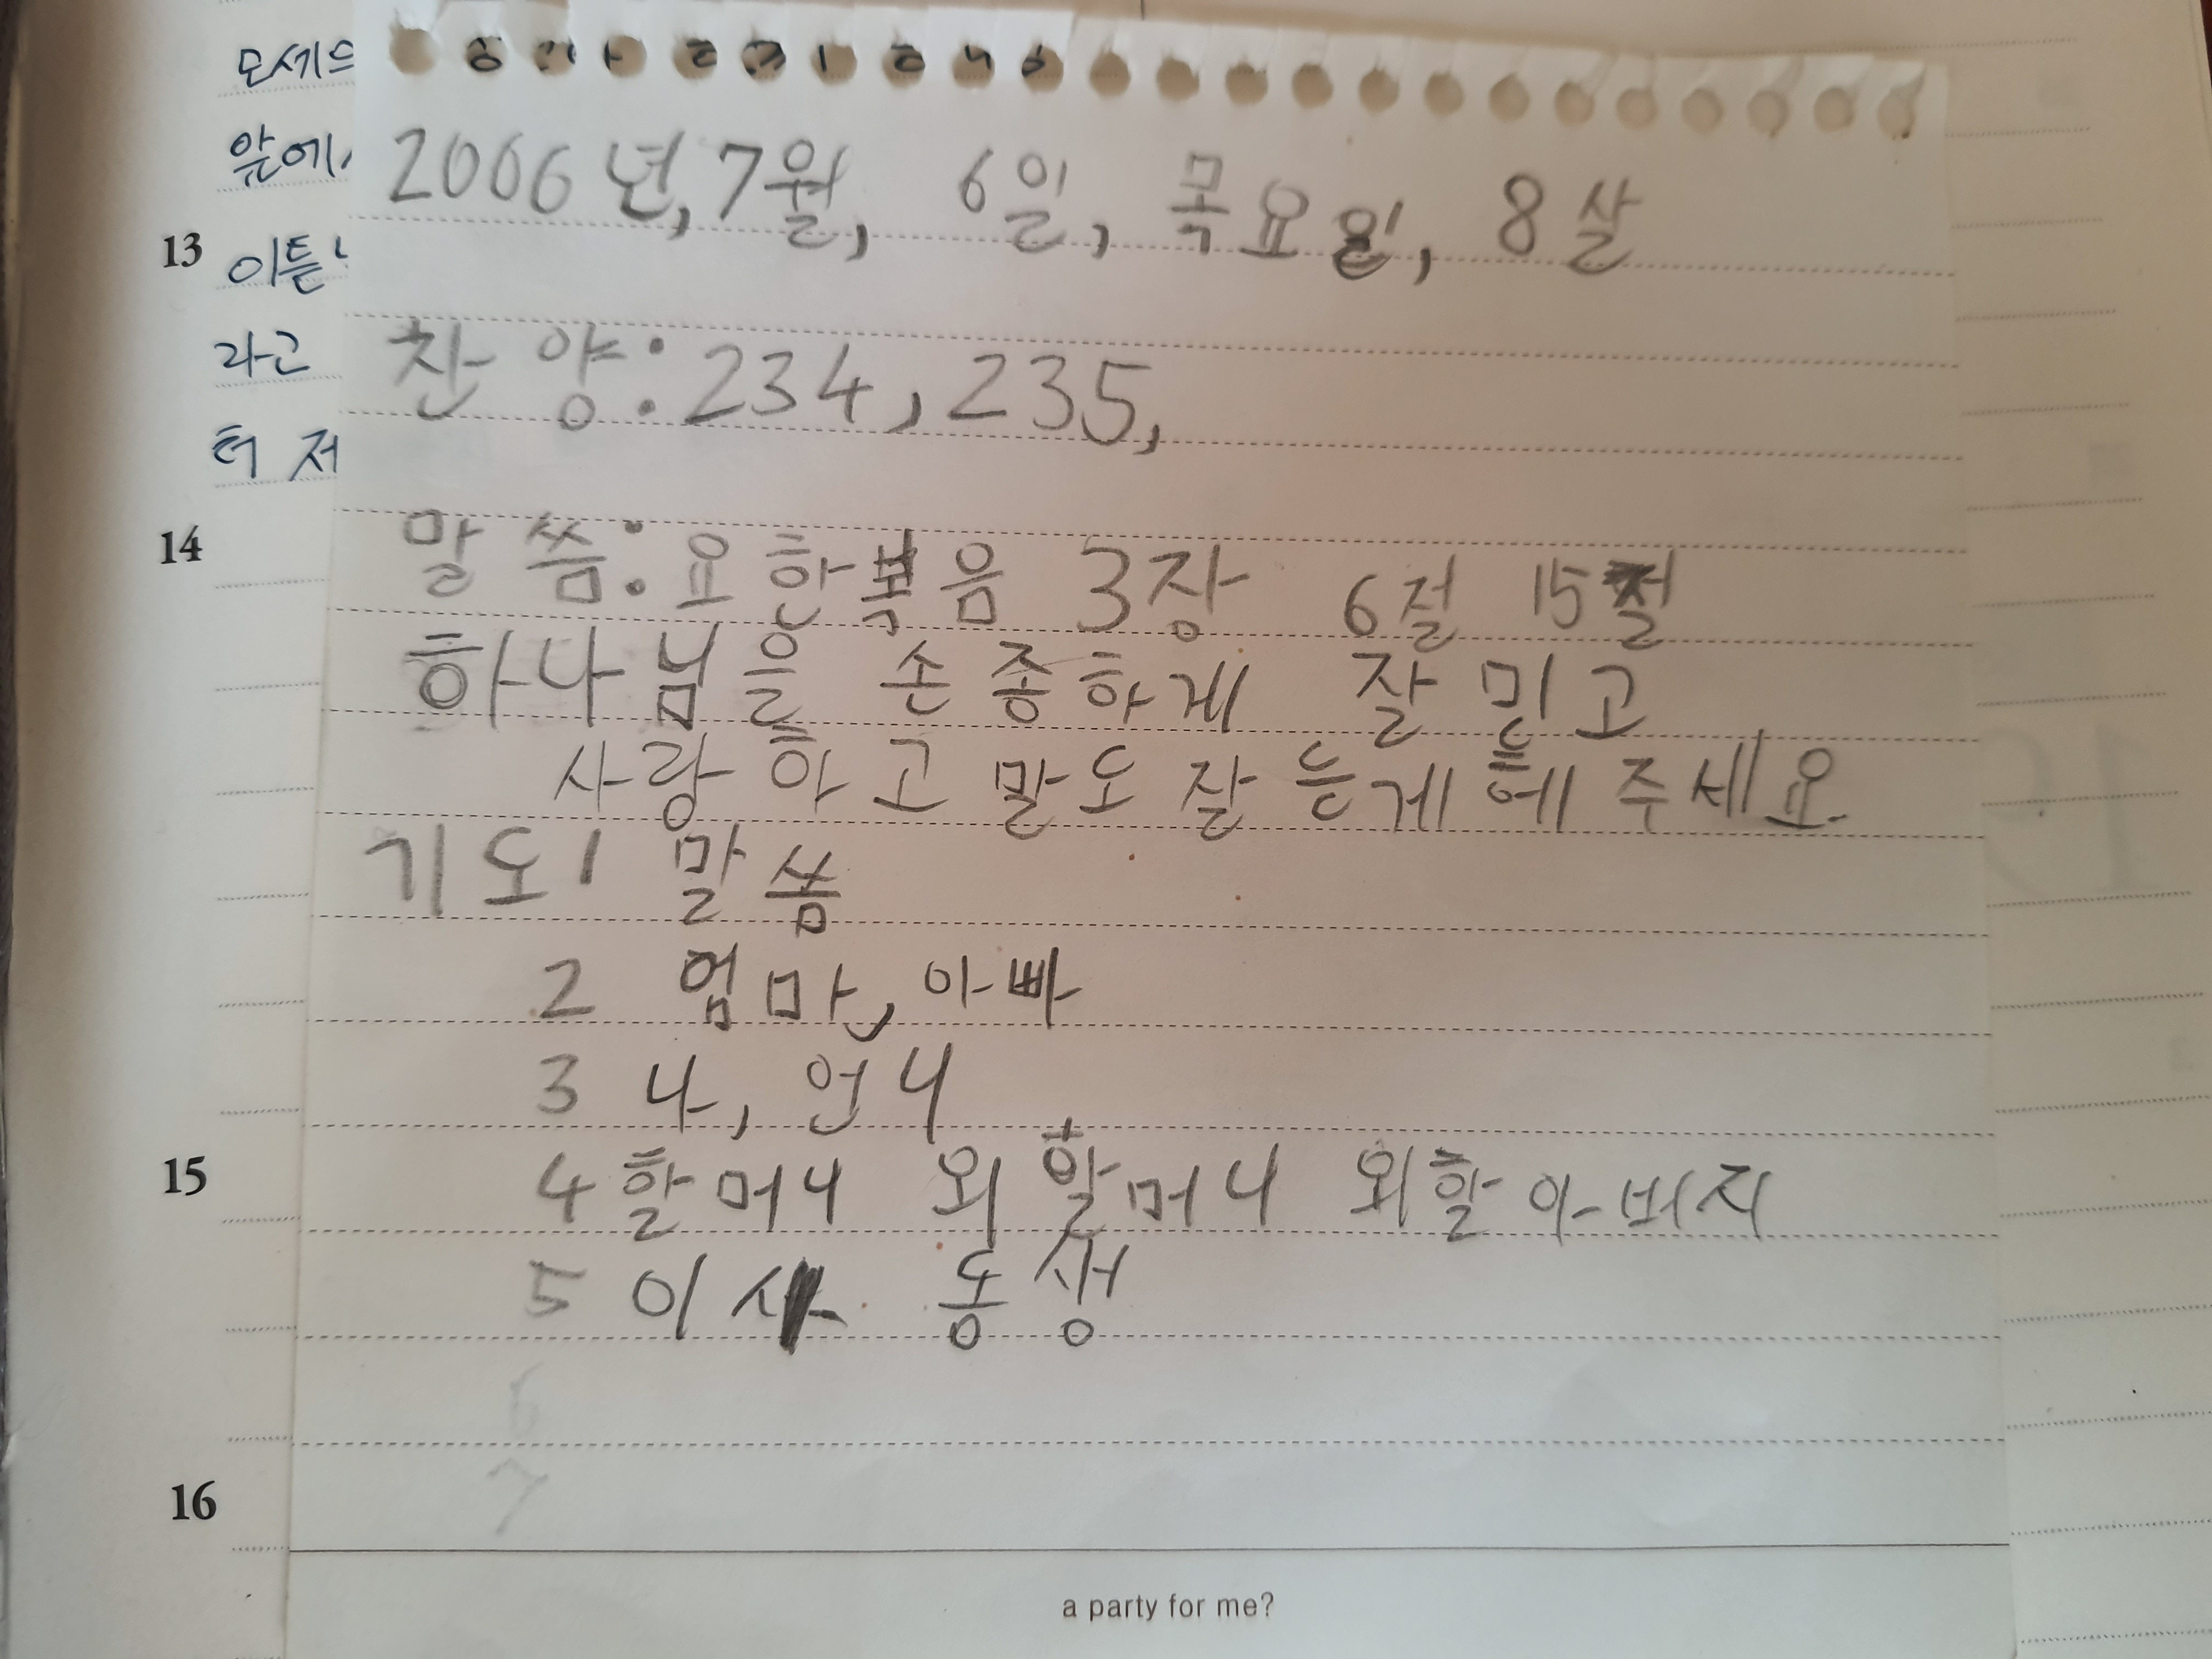 모세으
앞에
13 이튿
라고
터 저
2006년, 7월, 6일, 목요일, 8살
찬양: 234, 235,
14
말씀: 요한복음 3장 6절 15절
하나님을 손종하게 잘 믿고
사랑하고 말도 잘 듣게 헤 주세요.
기도 1 말씀
2 엄마, 아빠
3 나, 언니
15
4 할머니 외할머니 외할아버지
5 이사 동생
6
7
16
a party for me?